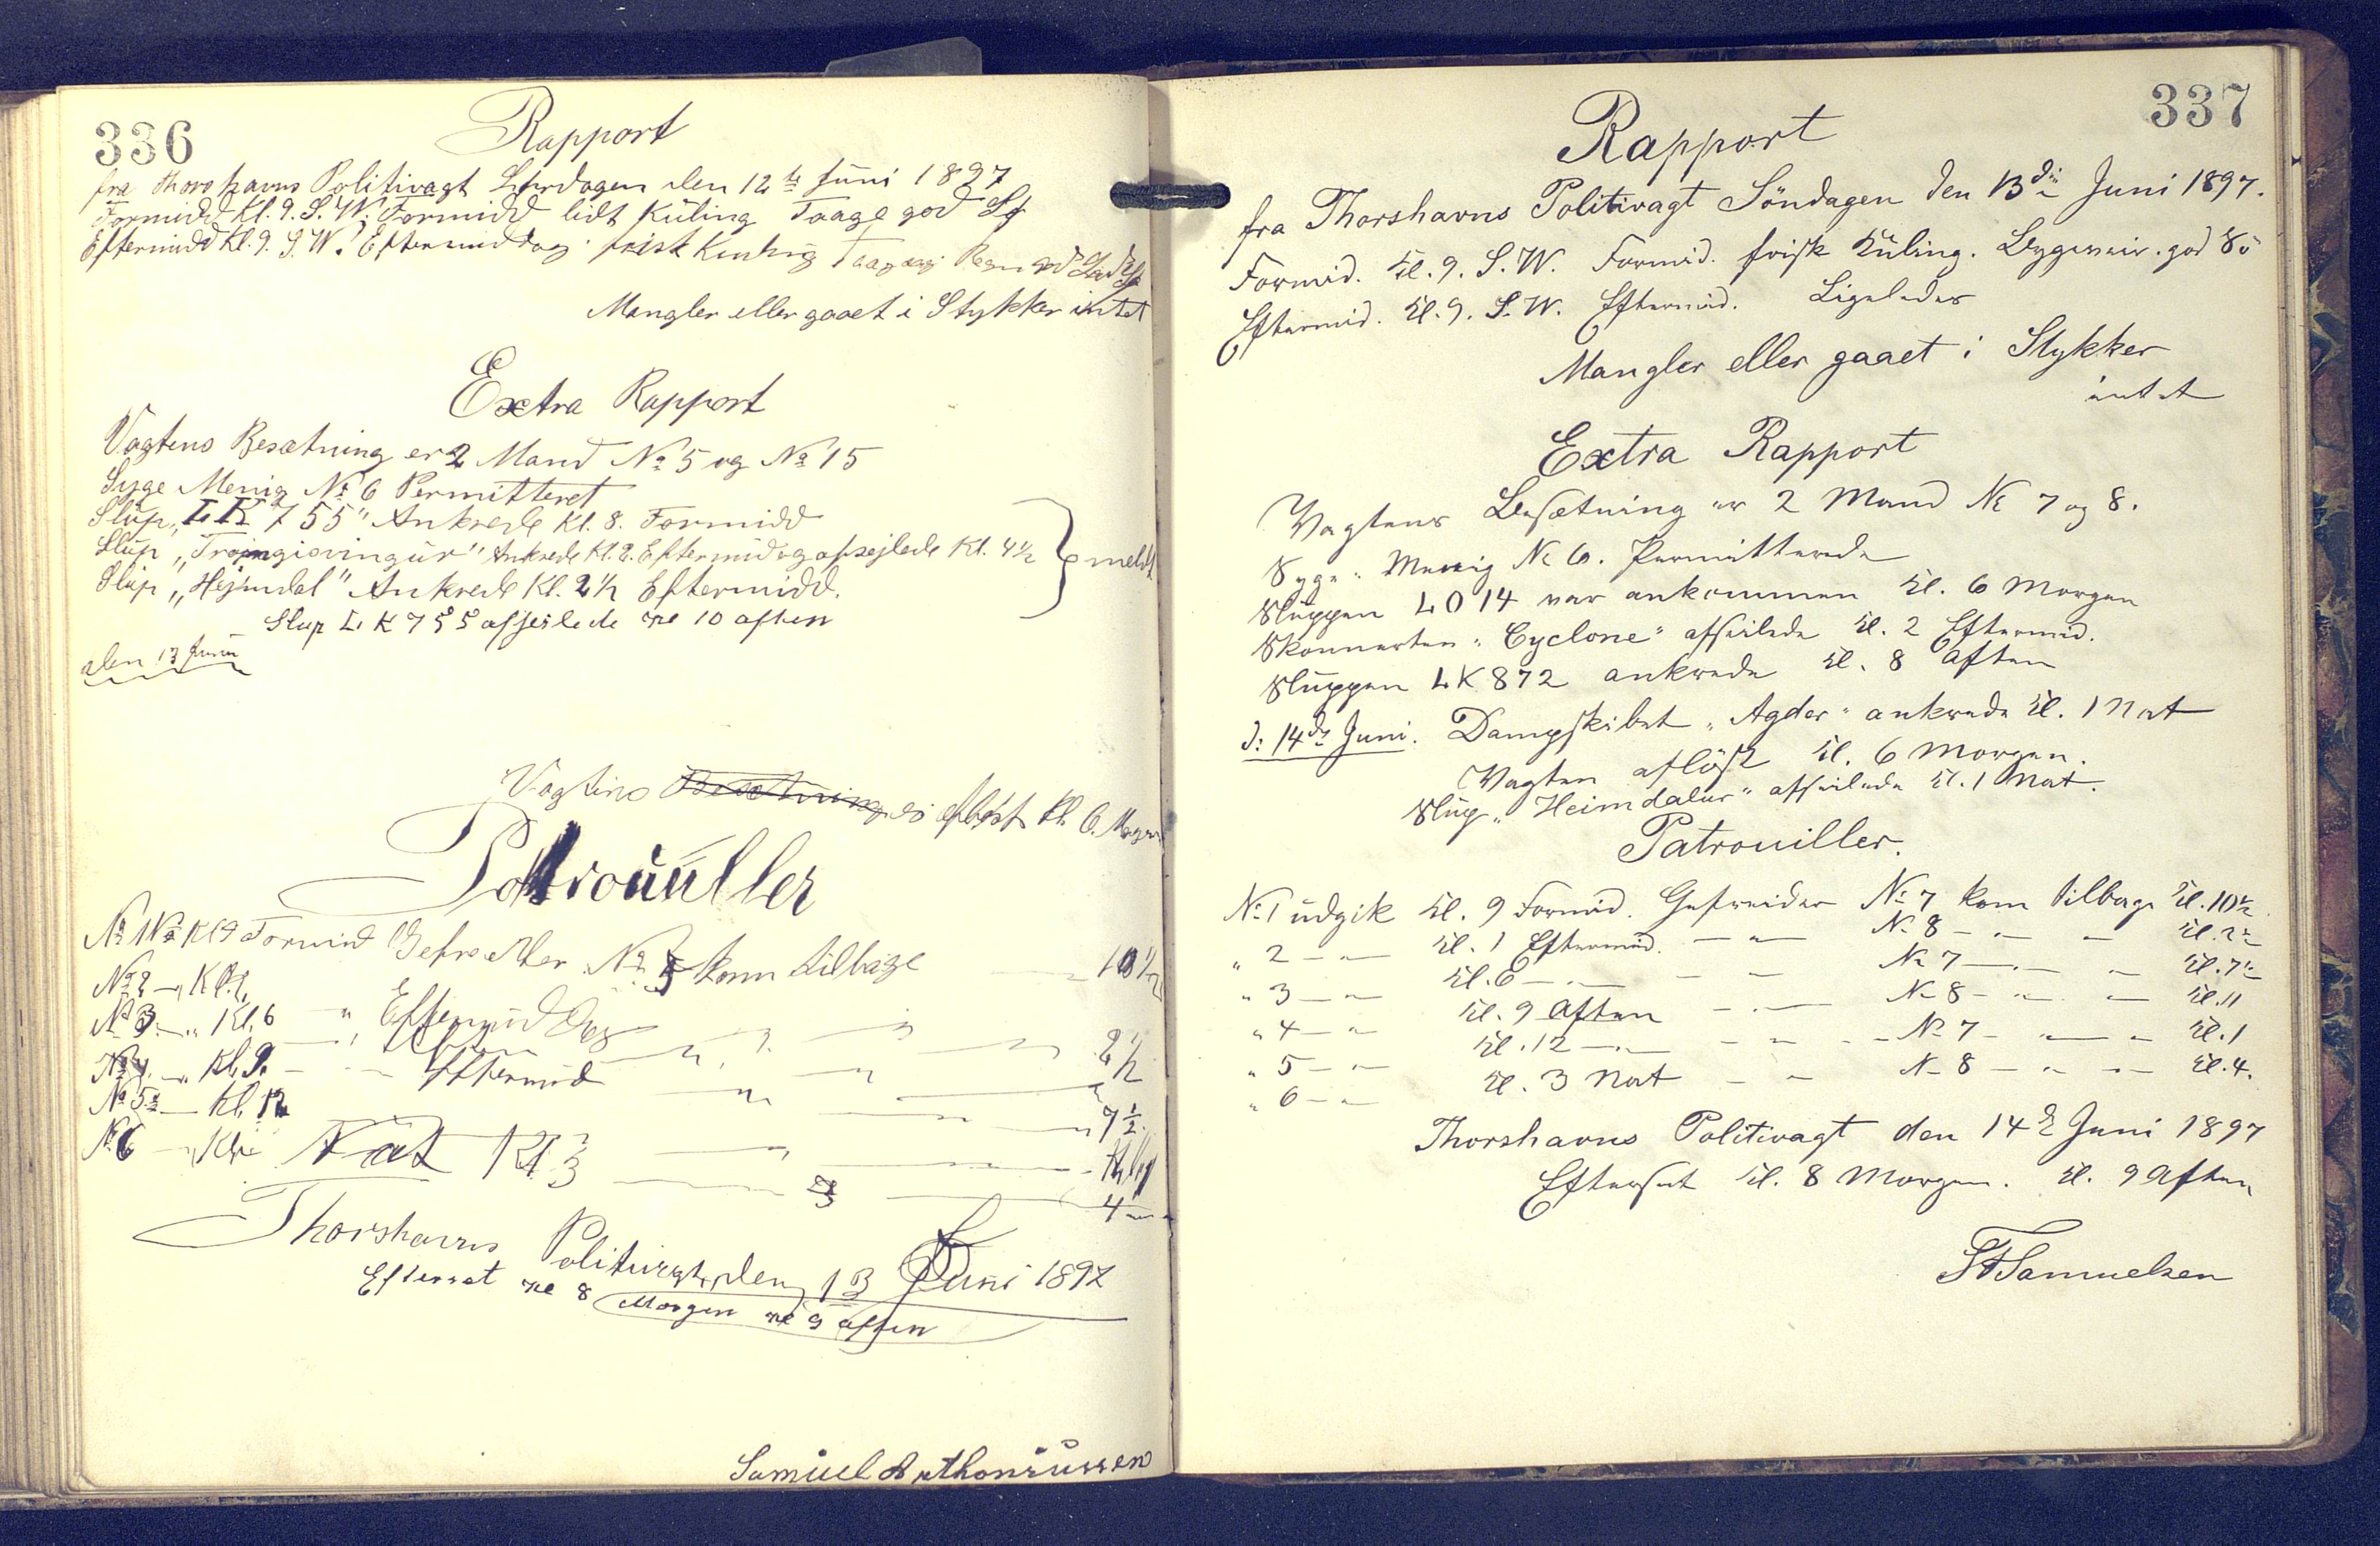 336
Rapport
fra Thorshavns Politivagt Lørdagen den 12te Juni 1897
Formidd Kl. 9. S. W. Formidd lidt Küling Taage god Sø
Eftermidd Kl. 9. S. W. Eftermiddag frisk Kuling Regn god
Mangler eller gaaet i Stykker intet
Extra Rapport
Vagtens Besætning er 2 Mand No 5 og No 15
Syge Menig No 6 Permitteret
Slup „LK 755" Ankrede Kl. 8. Formidd
Slup „Trøjngisvingur" Ankrede Kl. 2. Eftermid og afsejlede Kl. 4½
Slup „Hejmdal" Ankrede Kl. 2½ Eftermidd.
} meldt
Slup LK 755 afsejlede Kl 10 aften
den 13 Juni
Vagtens Besætning afløst Kl. 6. Morgen
Patrouiller
No 1 Kl 9 Formid Gefreider No 5 kom tilbage 10½
No 2 — „ Kl. Eftermiddag 2½
No 3 — „ Kl. 6 Eftermid 7½
No 4 — „ Kl. 9
No 5 — Kl. 12
No 6 — „ Nat Kl 3 4
Thorshavns Politivagt den 13 Juni 1897
Efterset Kl 8 Morgen Kl 9 aften
Samuel Anthoniussen
337
Rapport
fra Thorshavns Politivagt Söndagen den 13de Juni 1897.
Formid. Kl. 9. S. W. Formid. frisk Küling. Bygeveir. god Sö
Eftermid. Kl. 9. S. W. Eftermid. Ligeledes
Mangler eller gaaet i Stykker
intet
Extra Rapport
Vagtens Besætning er 2 Mand No 7 og 8.
Syge: Menig No 6. Permitterede
Sluppen LO 14 var ankommen Kl. 6 Morgen
Skonnerten „Cyclone" afseilede Kl. 2 Eftermid.
Sluppen LK 872 ankrede Kl. 8 Aften
d: 14de Juni. Dampskibet „Agder" ankrede Kl. 1 Nat
Vagten aflöst Kl. 6 Morgen.
Slup „Heimdalur" afseilede Kl. 1 Nat.
Patrouiller.
No 1 udgik Kl. 9 Formid. Gefreider No 7 kom tilbage Kl. 10½
„ 2 — „ — Kl. 1 Eftermid. — „ — No 8 — „ — Kl. 2½
„ 3 — „ — Kl. 6 — „ — No 7 — „ — Kl. 7½
„ 4 — „ — Kl. 9 Aften — „ — No 8 — „ — Kl. 11
„ 5 — „ — Kl. 12 — „ — No 7 — „ — Kl. 1
„ 6 — „ — Kl. 3 Nat — „ — No 8 — „ — Kl. 4.
Thorshavns Politivagt den 14de Juni 1897
Efterset Kl. 8 Morgen. Kl. 9 Aften
Samuelsen